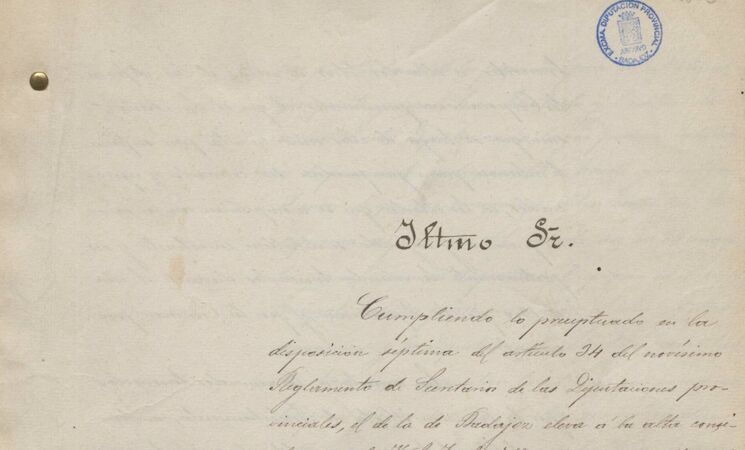 EXCMA. DIPUTACIÓN PROVINCIAL
ARCHIVO
BADAJOZ
Iltmo Sr.
Cumpliendo lo preceptuado en la
disposición séptima del artículo 34 del novísimo
Reglamento de Secretarios de las Diputaciones pro-
vinciales, el de la de Badajoz eleva á la alta consi-